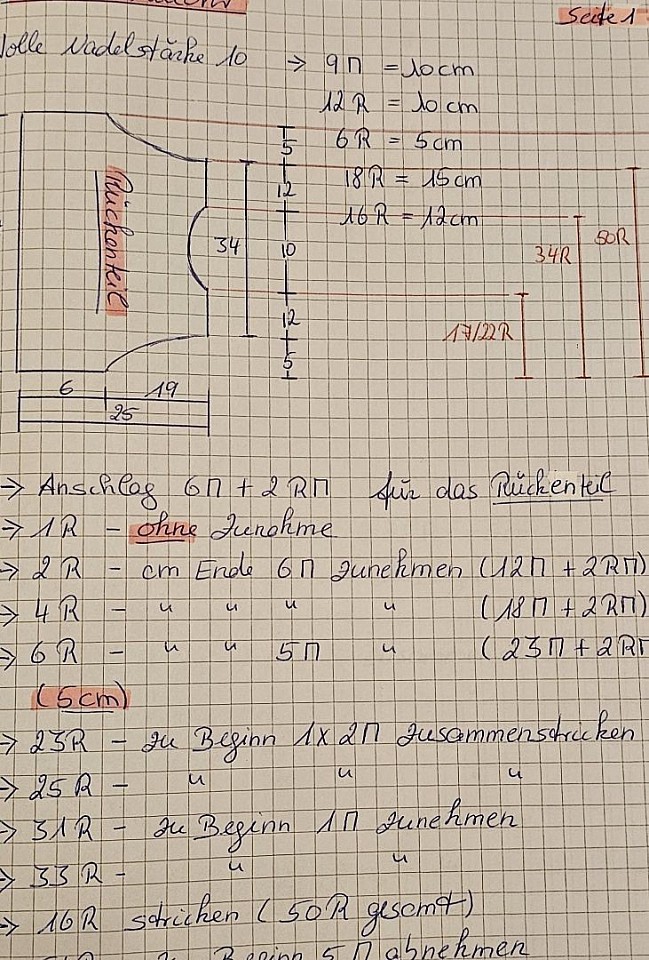 Seite 1
Nadelstärke 10 → 9 Π = 10 cm
12 R = 10 cm
6 R = 5 cm
18 R = 15 cm
16 R = 12 cm
Rückenteil
34
5
12
10
12
5
50R
34R
17/22R
6 19
25
→ Anschlag 6 Π + 2 RΠ für das Rückenteil
→ 1 R - ohne Zunahme
→ 2 R - am Ende 6 Π zunehmen (12 Π + 2 RΠ)
→ 4 R - " " " " (18 Π + 2 RΠ)
→ 6 R - " " 5 Π " (23 Π + 2 RΠ
(5cm)
→ 23R - zu Beginn 1x 2Π zusammenstricken
→ 25 R - " " "
→ 31 R - zu Beginn 1 Π zunehmen
→ 33 R - " "
→ 16R stricken (50R gesamt)
Beginn 5 Π abnehmen